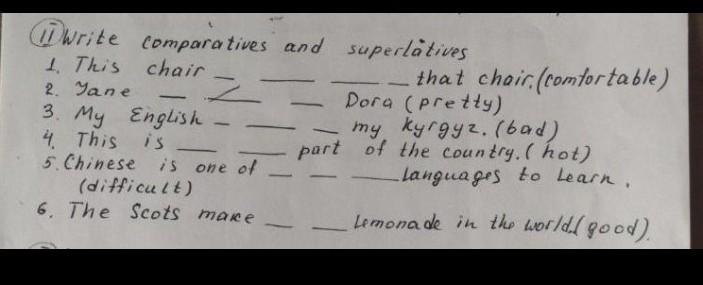 II Write comparatives and superlatives
1. This chair _ _ _ that chair. (comfortable)
2. Jane _ _ _ Dora (pretty)
3. My English _ _ _ my kyrgyz. (bad)
4. This is _ _ part of the country. (hot)
5. Chinese is one of _ _ _ languages to learn.
(difficult)
6. The Scots make _ _ lemonade in the world. (good).